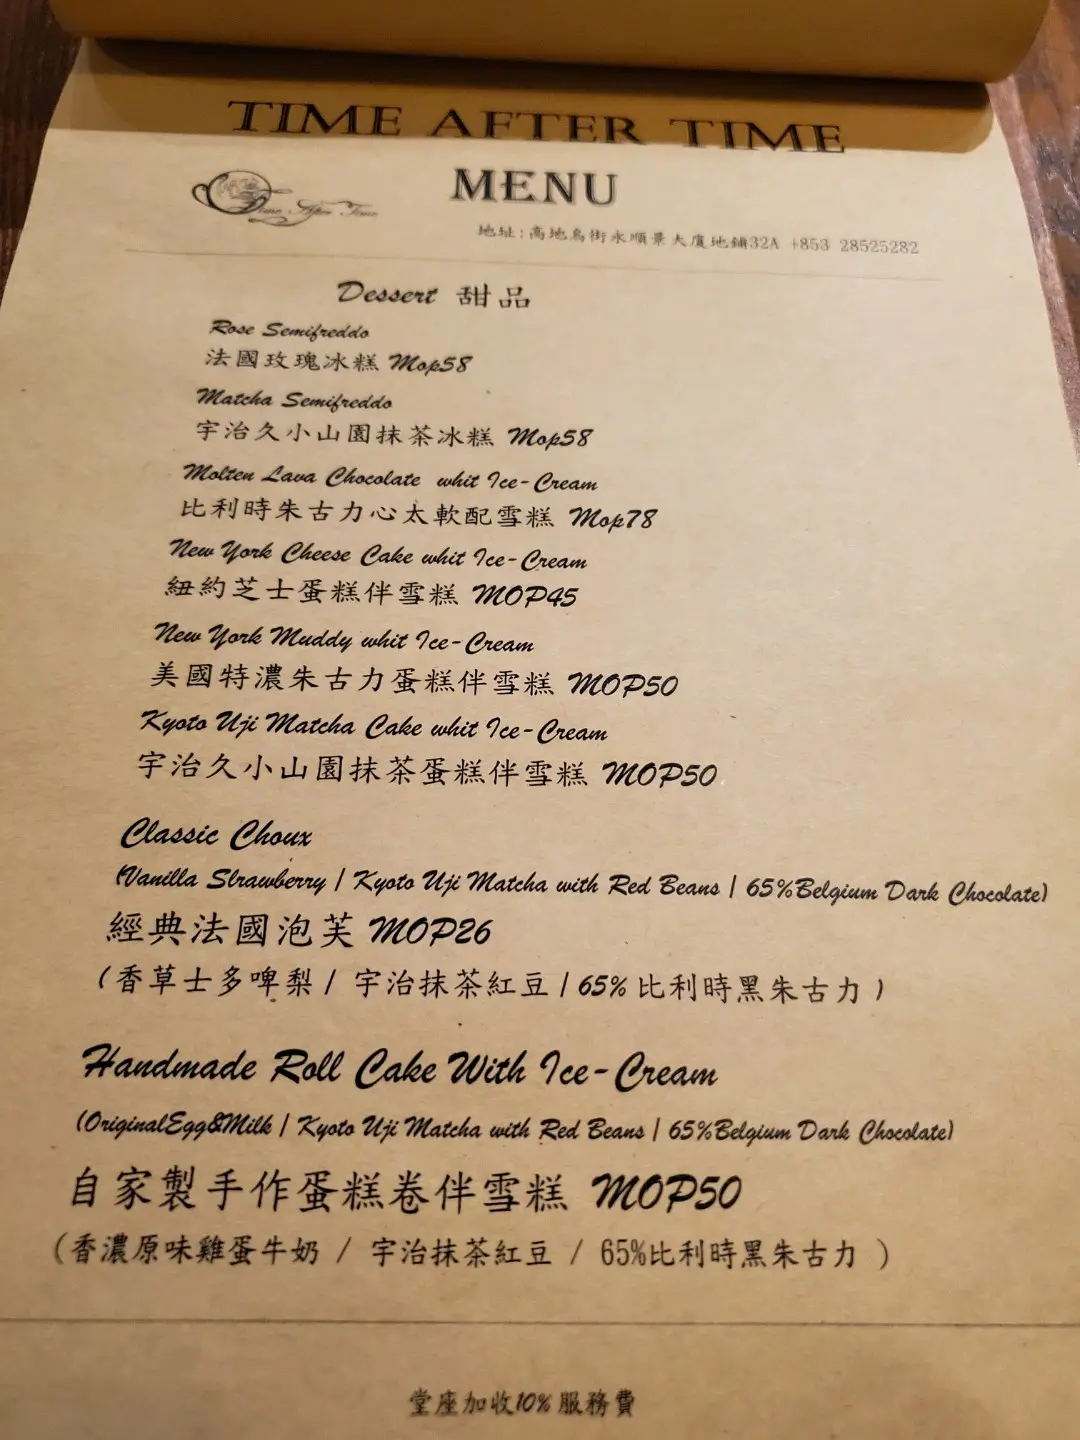 TIME AFTER TIME
MENU
Time After Time
地址:高地烏街永順景大廈地鋪32A +853 28525282
Dessert 甜品
Rose Semifreddo
法國玫瑰冰糕 Mop58
Matcha Semifreddo
宇治久小山園抹茶冰糕 Mop58
Molten Lava Chocolate whit Ice-Cream
比利時朱古力心太軟配雪糕 Mop78
New York Cheese Cake whit Ice-Cream
紐約芝士蛋糕伴雪糕 MOP45
New York Muddy whit Ice-Cream
美國特濃朱古力蛋糕伴雪糕 MOP50
Kyoto Uji Matcha Cake whit Ice-Cream
宇治久小山園抹茶蛋糕伴雪糕 MOP50
Classic Choux
(Vanilla Slrawberry | Kyoto Uji Matcha with Red Beans | 65%Belgium Dark Chocolate)
經典法國泡芙 MOP26
(香草士多啤梨 / 宇治抹茶紅豆 | 65%比利時黑朱古力)
Handmade Roll Cake With Ice-Cream
(OriginalEgg&Milk | Kyoto Uji Matcha with Red Beans | 65%Belgium Dark Chocolate)
自家製手作蛋糕卷伴雪糕 MOP50
(香濃原味雞蛋牛奶 / 宇治抹茶紅豆 / 65%比利時黑朱古力 )
堂座加收10%服務費